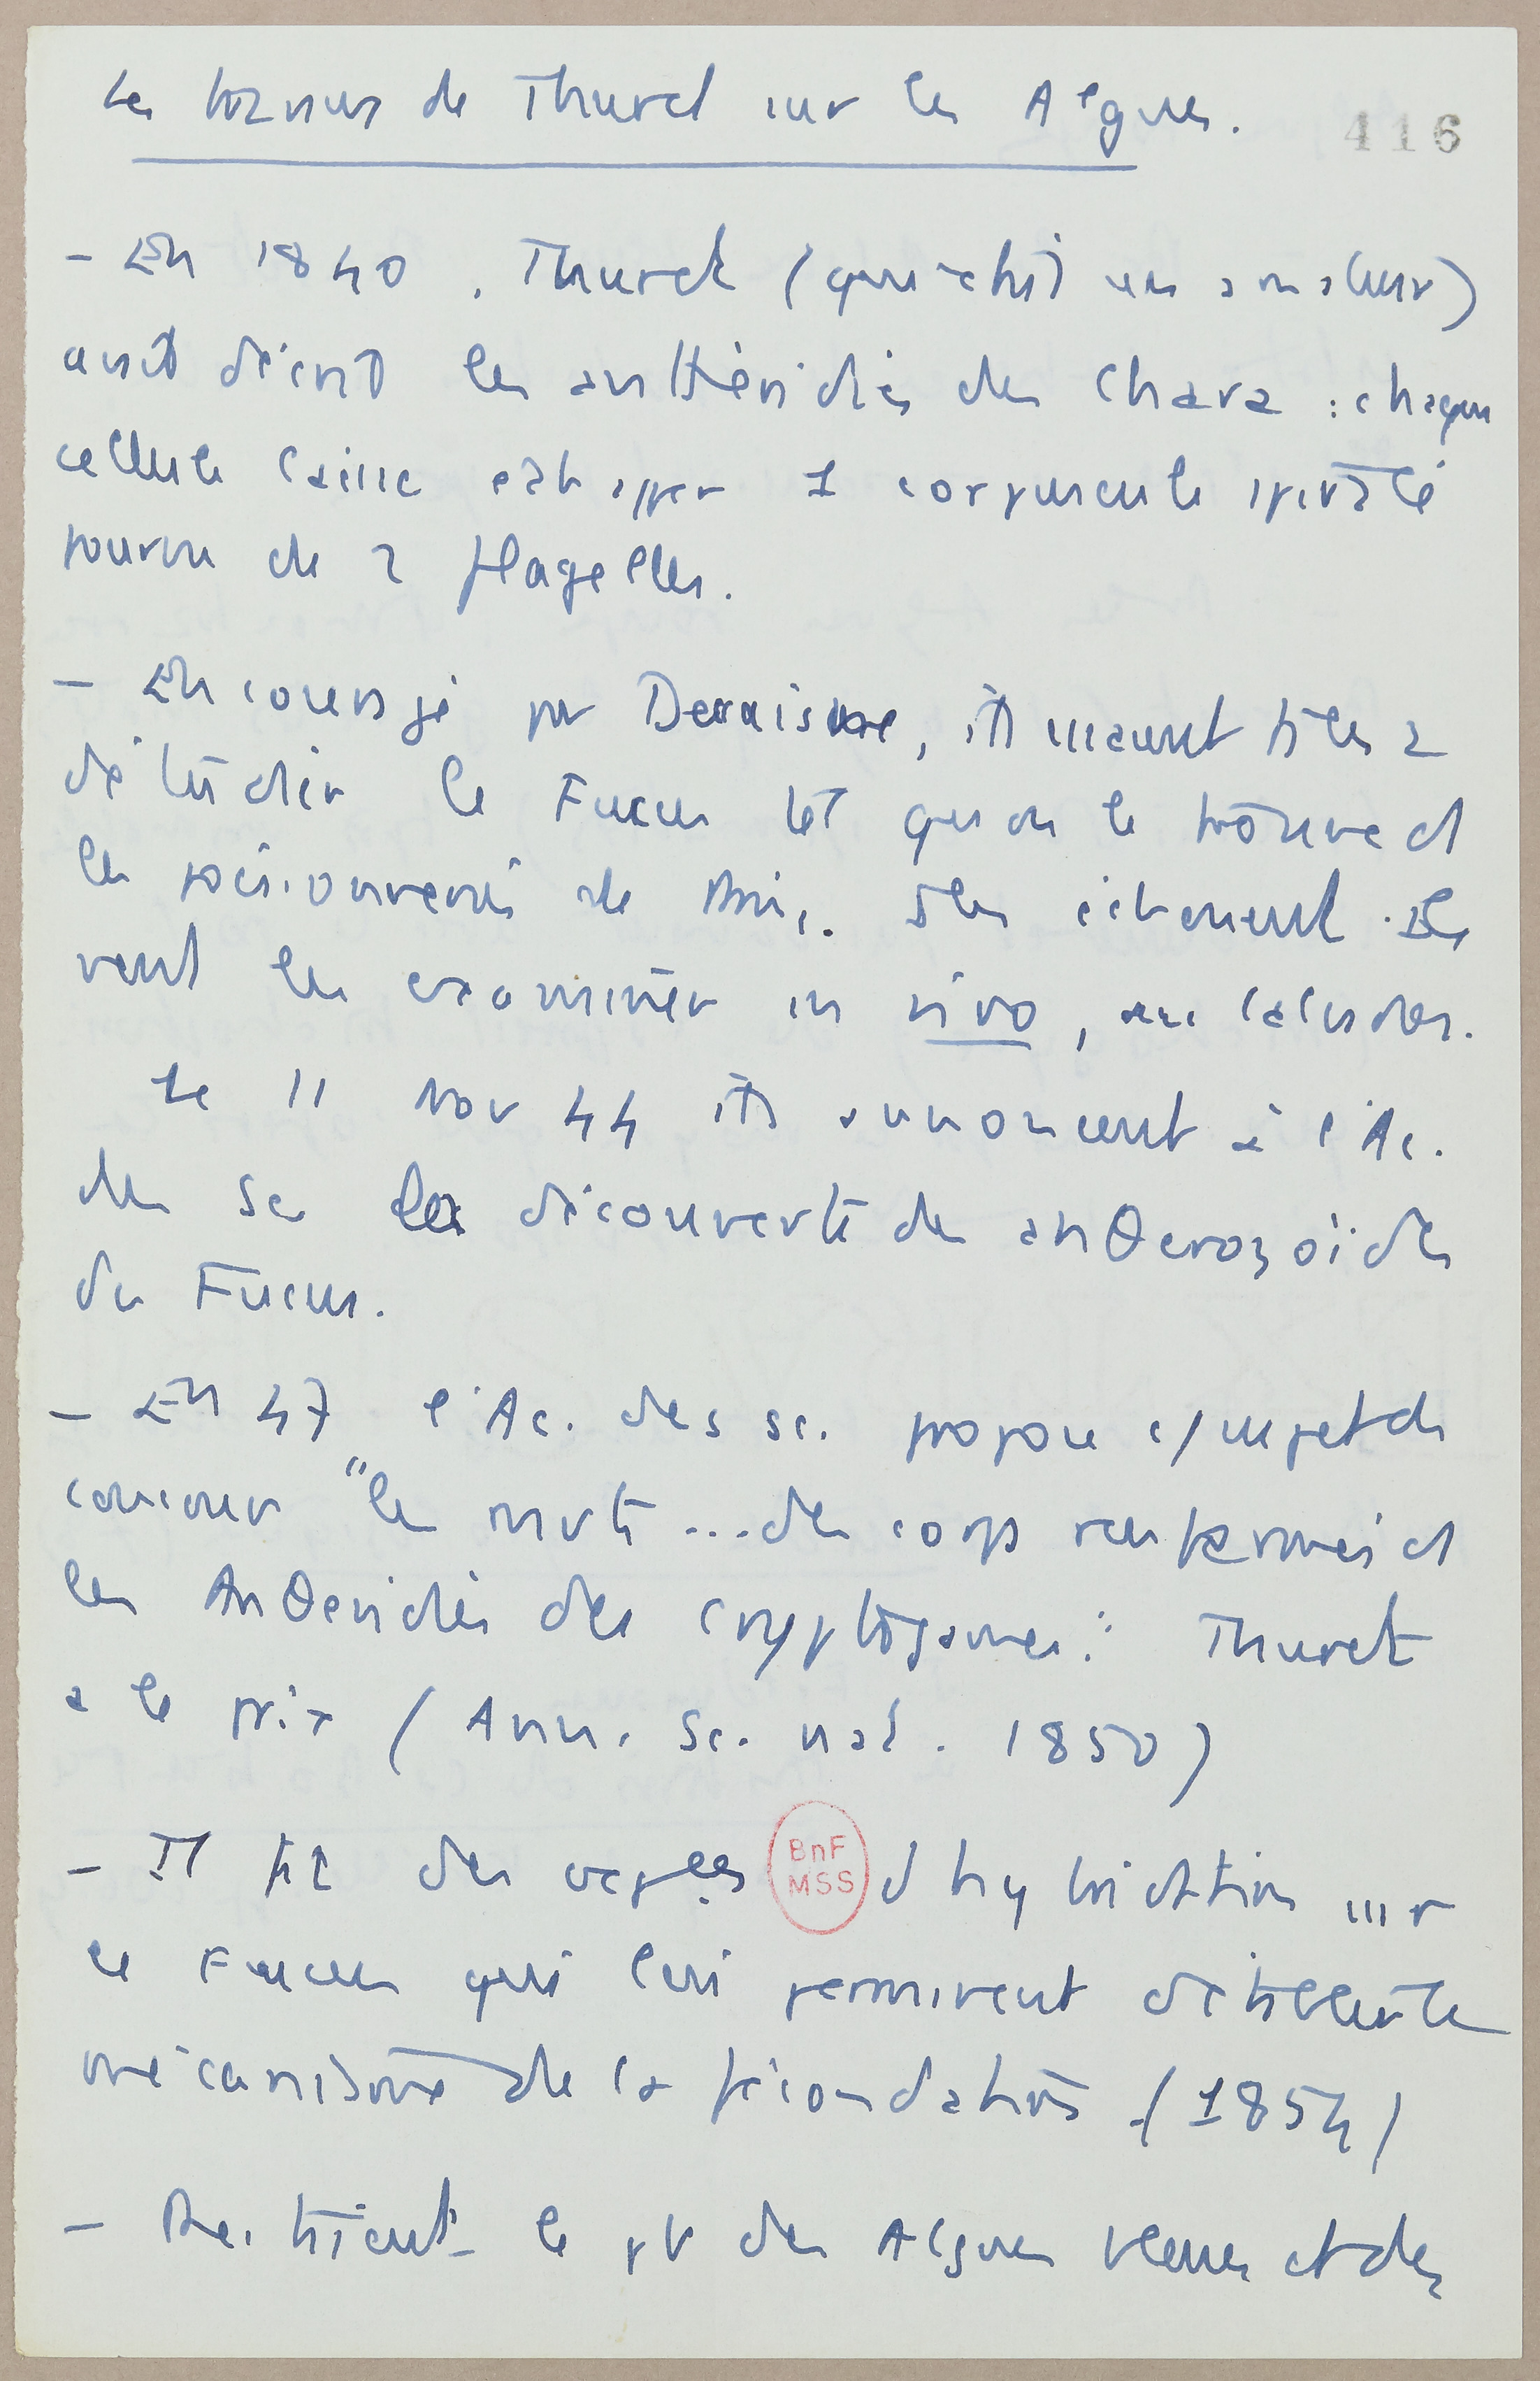 Les travaux de Thuret sur les Algues.
416
- En 1840, Thuret (qui était un amateur)
avait décrit les anthéridies des Chara : chaque
cellule laisse échapper 1 corpuscule spiralé
pourvu de 2 flagelles.
- Encouragé par Decaisne, ils
d'étudier le Fucus tel qu'on le trouve ds
les de Paris. Ils
veut les examiner in vivo, sur
Le 11 Nov 44 ils annoncent à l'Ac.
des Sc la découverte des anθerozoïdes
du Fucus.
- En 47 l'Ac. des sc. propose c/ sujet de
concours "les mvts ... des corps renfermés ds
les Anθeridies des cryptogames". Thuret
a le prix (Ann. Sc. nat. 1850)
- Il fit des exp^ces d'hybridation sur
le Fucus qui lui permirent d'établir le
mécanisme de la fécondation (1854)
BnF
MSS
- le pb des Algues bleues et des